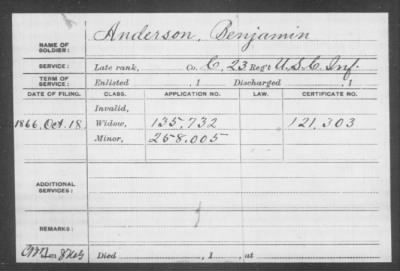 NAME OF SOLDIER: Anderson, Benjamin
SERVICE: Late rank, Co. C, 23 Reg't U.S.C. Inf.
TERM OF SERVICE: Enlisted , 1 Discharged , 1
DATE OF FILING. CLASS. APPLICATION NO. LAW. CERTIFICATE NO.
Invalid,
1866, Oct. 18 Widow, 135,732 121,303
Minor, 258,005
ADDITIONAL SERVICES:
REMARKS:
Died , 1 , at